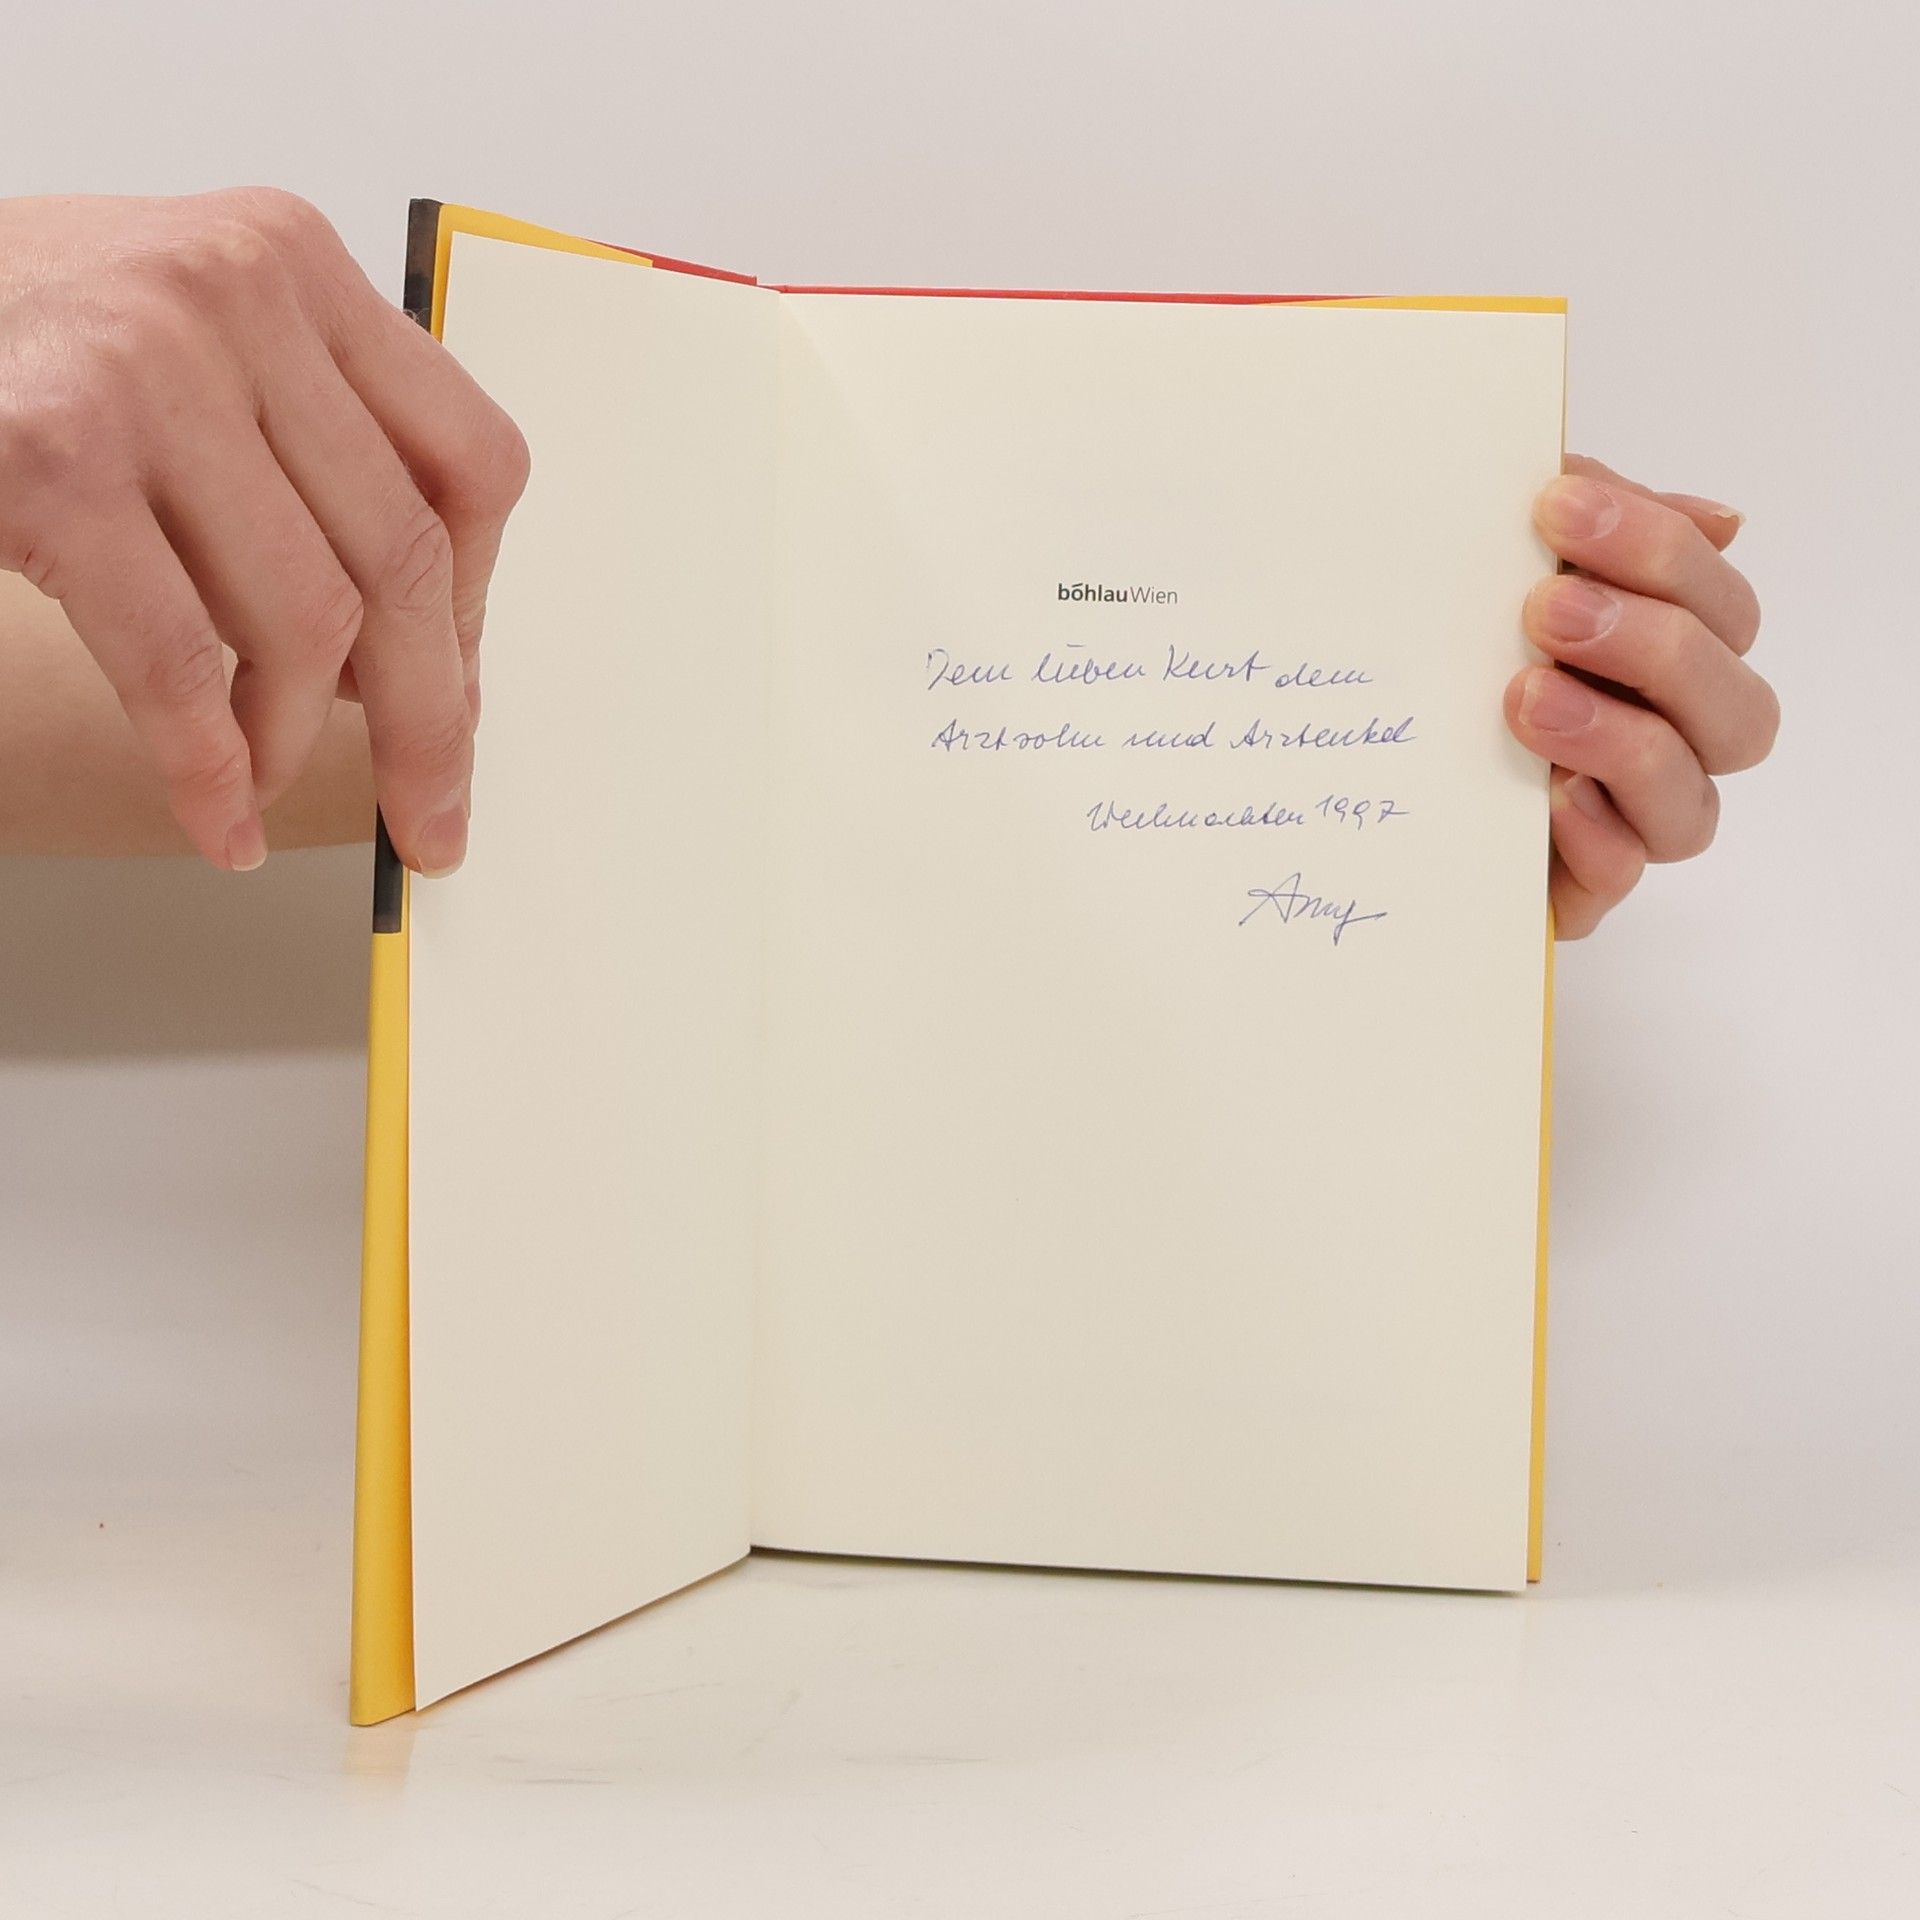 böhlauWien
Dem lieben Kurt dem
Arztsohn und Arztenkel
Weihnachten 1997